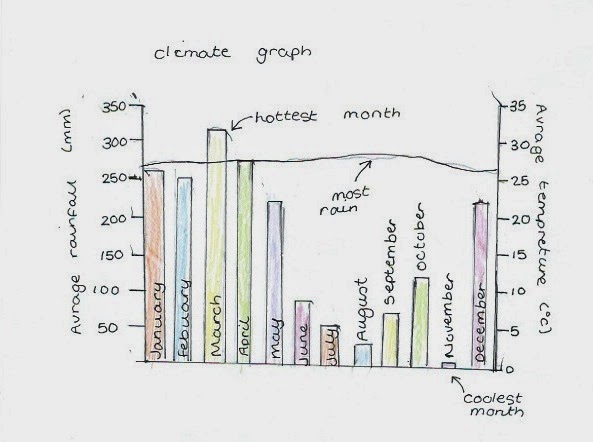 climate graph
Avrage rainfall (mm)
350
300
250
200
150
100
50
hottest month
most
rain
January
Febuary
March
April
May
June
July
August
September
october
November
December
coolest
month
35
30
25
20
15
10
5
0
Avrage tempreture (°C)